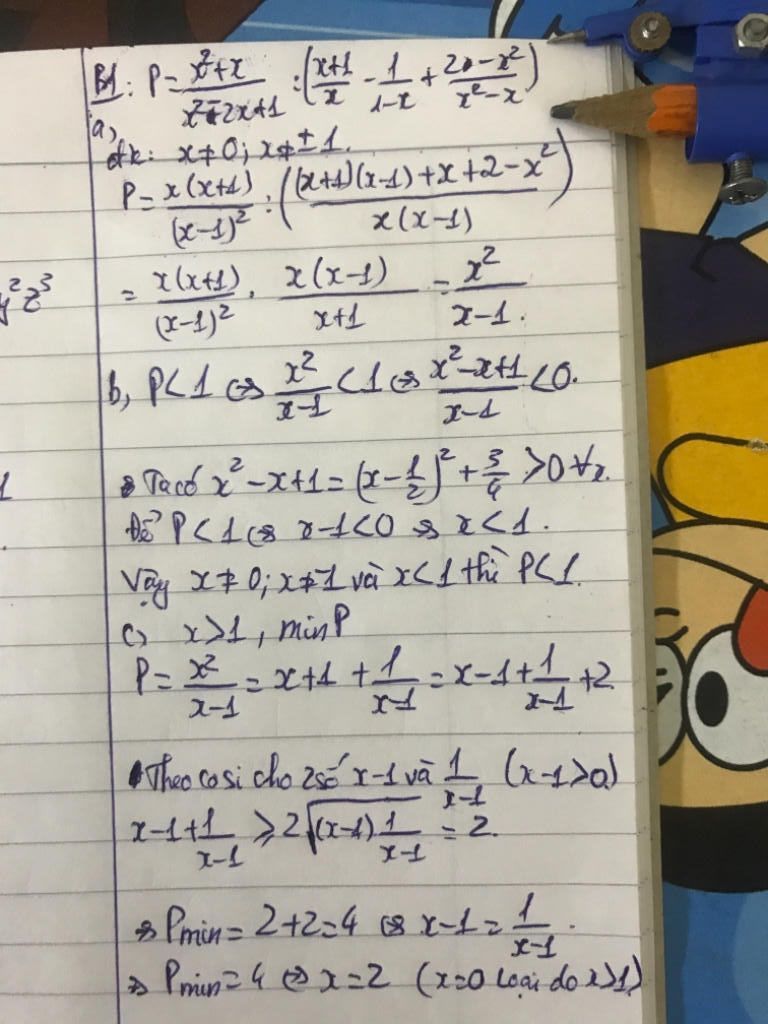 B1: P = \frac{x^2+x}{x^2-2x+1} : (\frac{x+1}{x} - \frac{1}{1-x} + \frac{2-x^2}{x^2-x})
a,
đk: x ≠ 0; x ≠ ±1.
P = \frac{x(x+1)}{(x-1)^2} : (\frac{(x+1)(x-1)+x+2-x^2}{x(x-1)})
y^2z^3
= \frac{x(x+1)}{(x-1)^2} . \frac{x(x-1)}{x+1} = \frac{x^2}{x-1}.
b, P<1 ⇔ \frac{x^2}{x-1} < 1 ⇔ \frac{x^2-x+1}{x-1} < 0.
1
Ta có x^2-x+1 = (x-\frac{1}{2})^2 + \frac{3}{4} > 0 ∀x.
Để P<1 ⇔ x-1<0 ⇔ x<1.
Vậy x≠0; x≠-1 và x<1 thì P<1.
c, x>1, min P
P = \frac{x^2}{x-1} = x+1 + \frac{1}{x-1} = x-1 + \frac{1}{x-1} + 2
Theo cosi cho 2 số x-1 và \frac{1}{x-1} (x-1>0)
x-1 + \frac{1}{x-1} ≥ 2\sqrt{(x-1)\frac{1}{x-1}} = 2.
⇒ Pmin = 2+2=4 ⇔ x-1 = \frac{1}{x-1}.
⇒ Pmin = 4 ⇔ x=2 (x=0 loại do x>1)